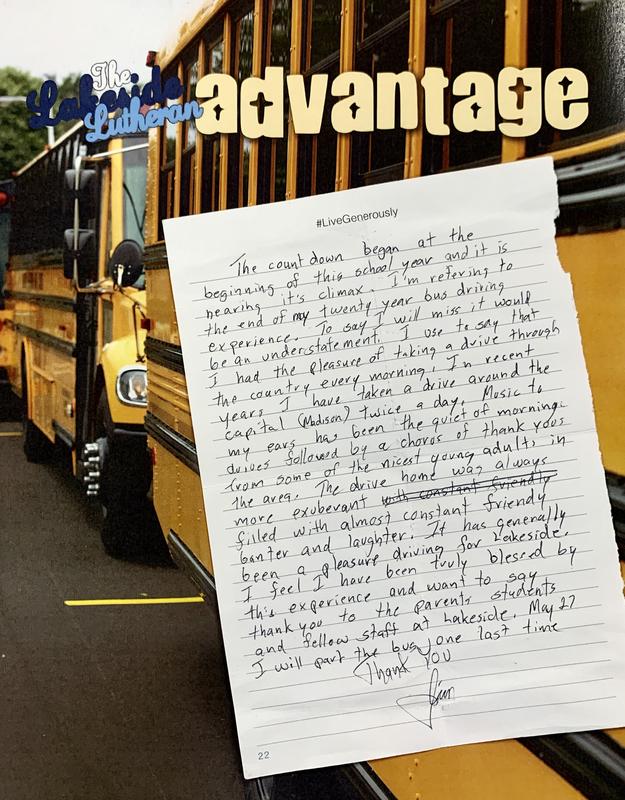 The
Lakeside
Lutheran
advantage
#LiveGenerously
The countdown began at the
beginning of this school year and it is
nearing it's climax. I'm refering to
the end of my twenty year bus driving
experience. To say I will miss it would
be an understatement. I use to say that
I had the pleasure of taking a drive through
the country every morning, In recent
years I have taken a drive around the
capital (Madison) twice a day. Music to
my ears has been the quiet of morning
drives followed by a chorus of thank yous
from some of the nicest young adults in
the area. The drive home was always
more exuberant with constant friendly
filled with almost constant friendly
banter and laughter. It has generally
been a pleasure driving for Lakeside.
I feel I have been truly blessed by
this experience and want to say
thank you to the parents students
and fellow staff at Lakeside. May 27
I will park the bus one last time
Thank You
Jim
22